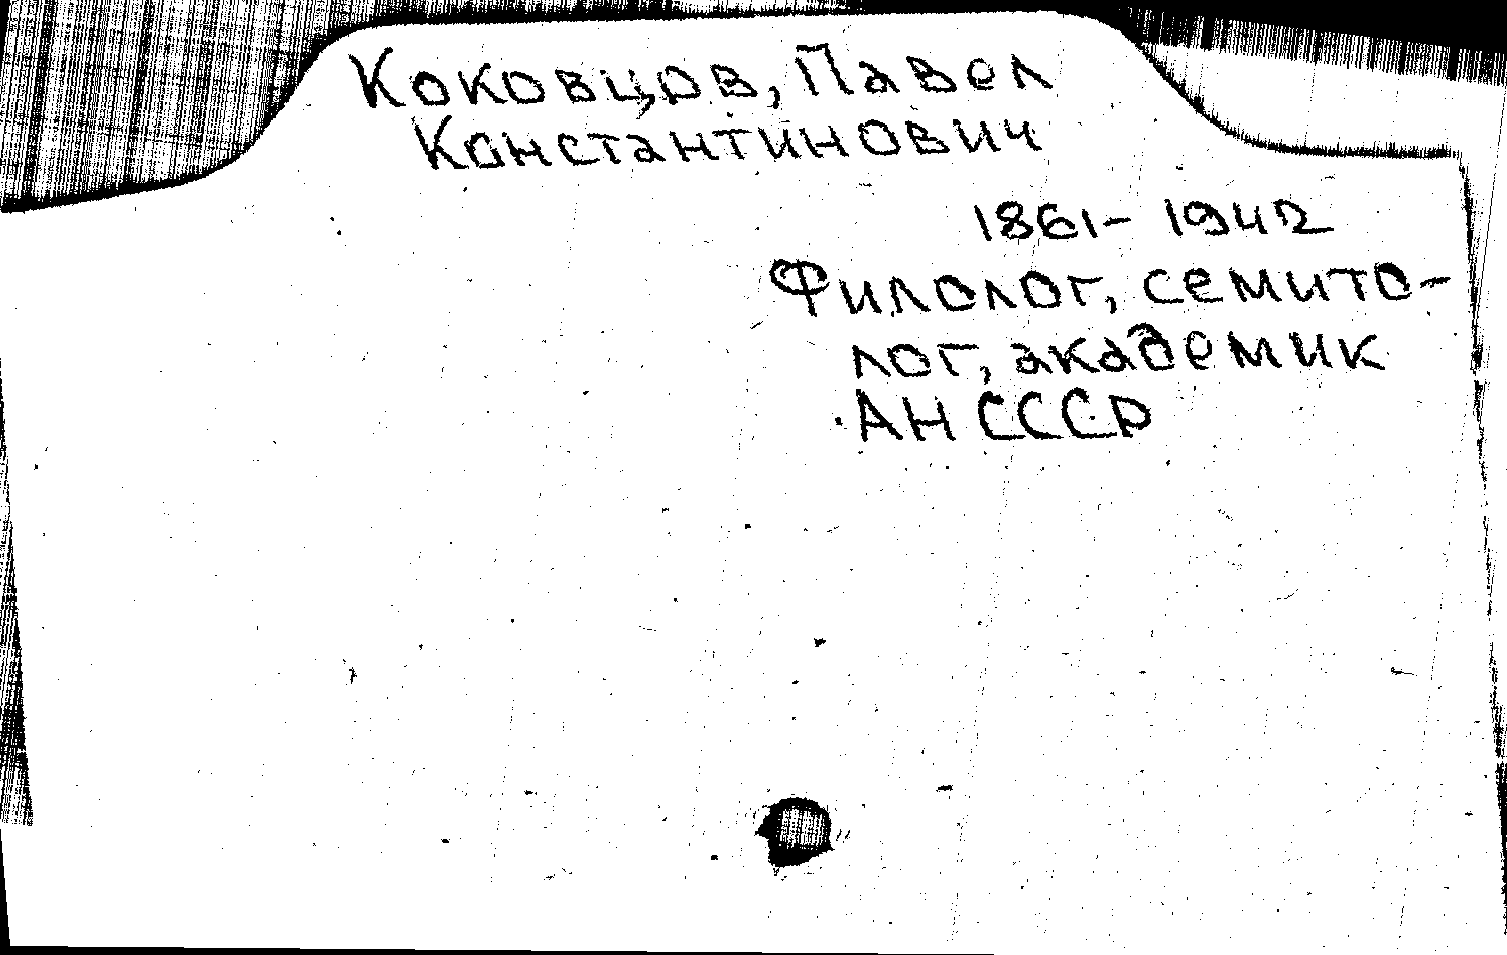 Коковцов, Павел
Константинович
1861-1942
Филолог, семито-
лог, академик
АН СССР